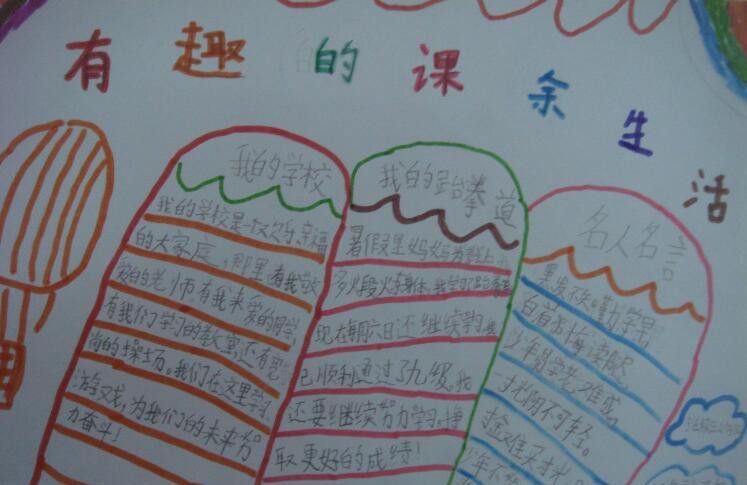 有趣的课余生活
我的学校
我的学校是一 欢乐、幸福
的大家庭,那里有我敬
爱的老师,有我亲爱的同学
有我们学习的教室,还有宽
尚的操场。我们在这里学习
游戏,为我们的未来努
力奋斗!
我的跆拳道
暑假里妈妈为我
多锻炼身体,我学习了跆拳道
现在每周六日还继续学习。我
已顺利通过了九级。我
还要继续努力学习,挣
取更好的成绩!
名人名言
黑发不知勤学早,
白首方悔读书迟。
少年易学老难成,
寸光阴不可轻。
金难买寸光
少年不